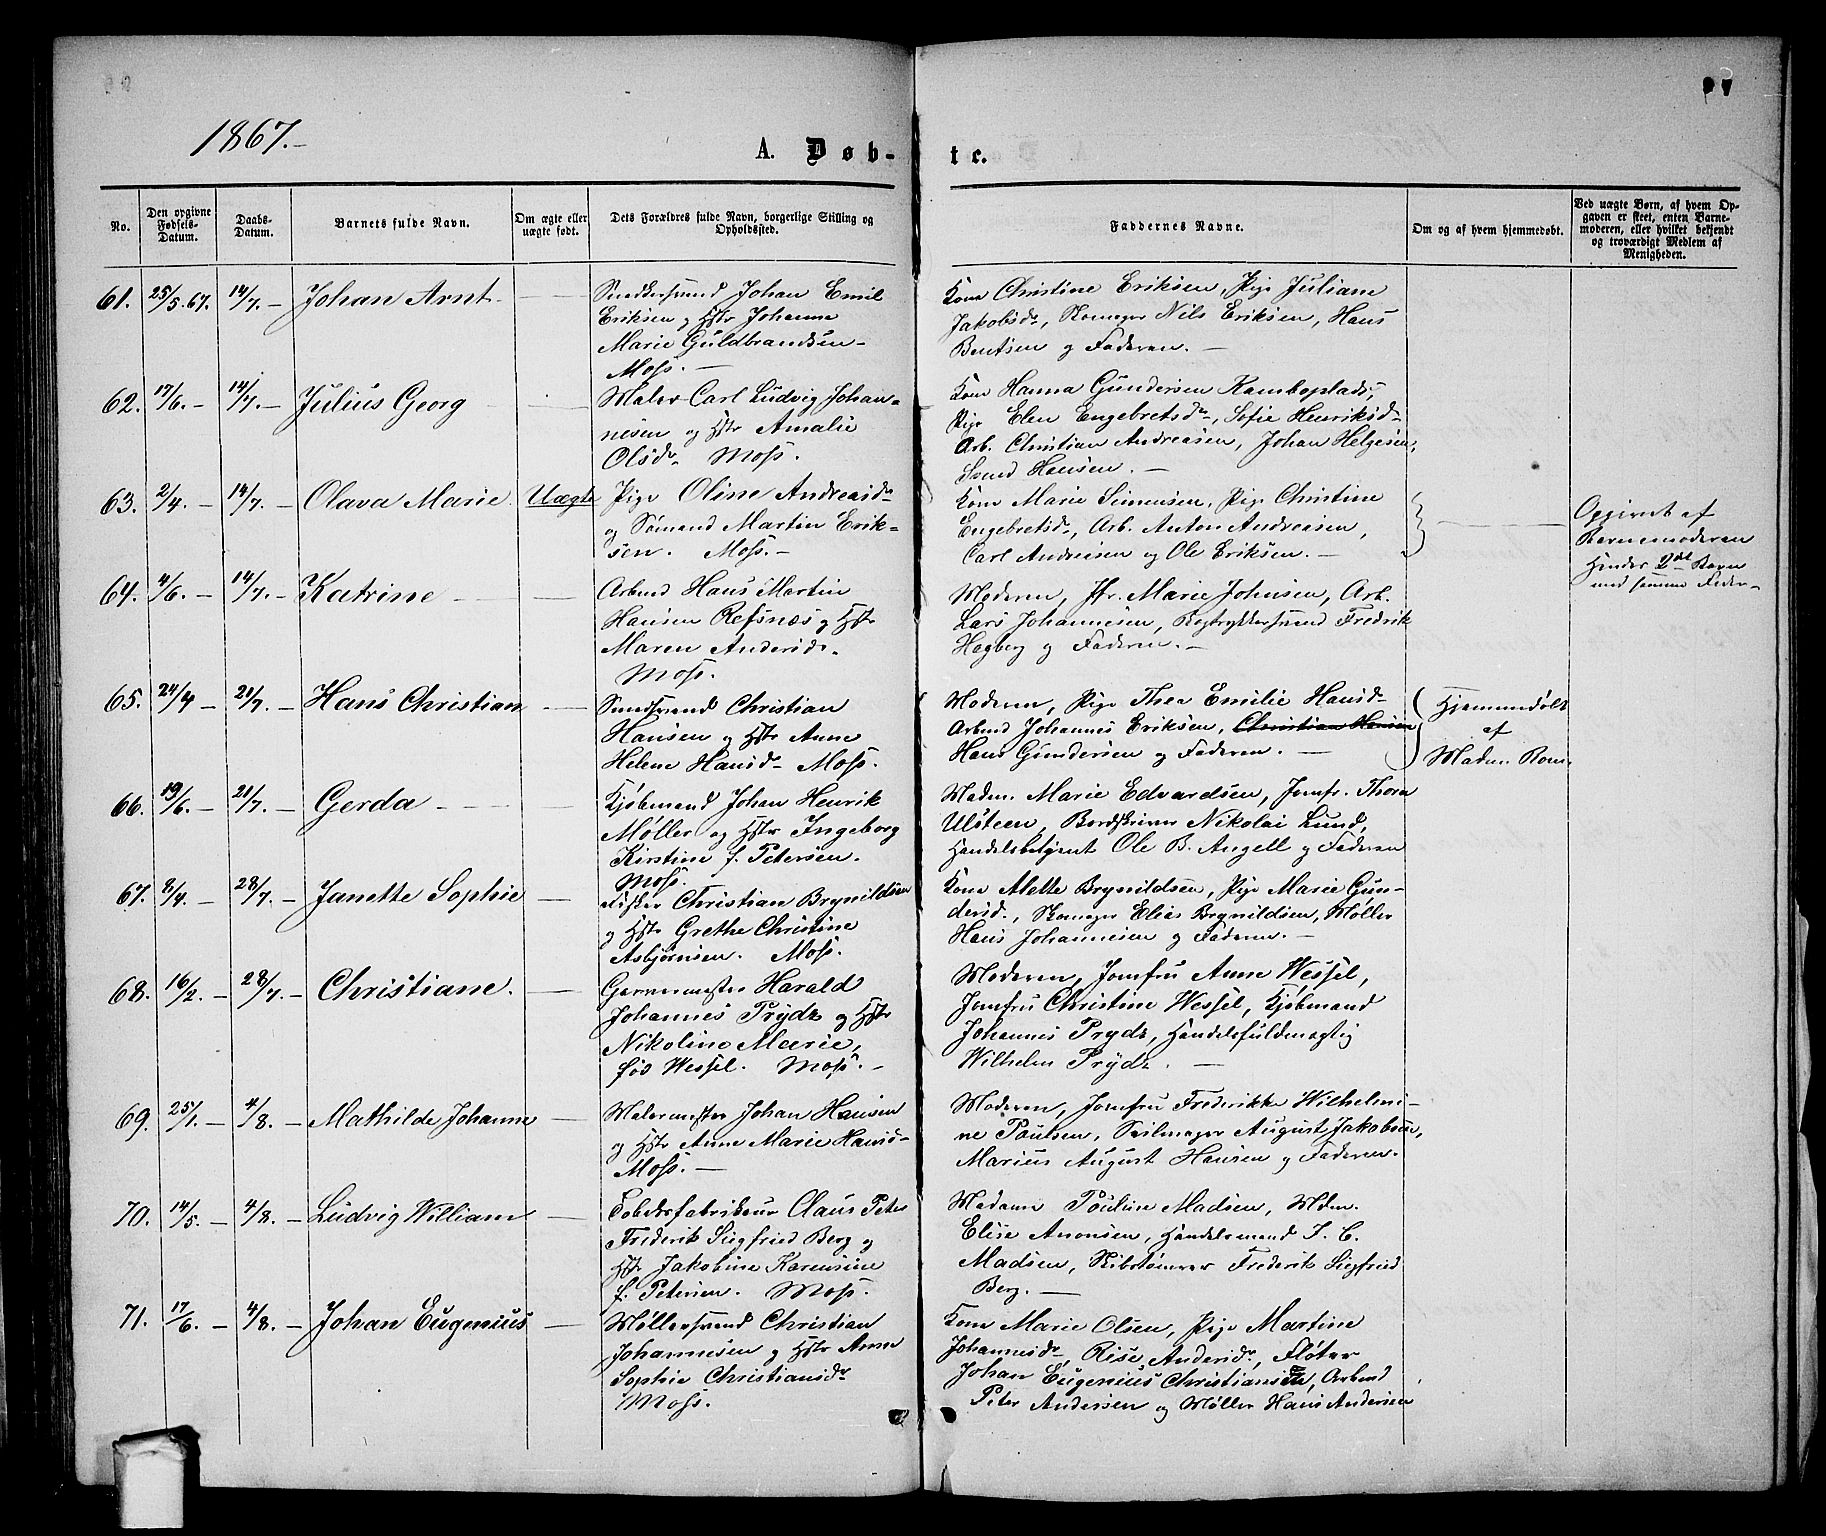 97
1867.-
A. Døb-te.
No.
Den opgivne Fødsels-Datum.
Daabs-Datum.
Barnets fulde Navn.
Om ægte eller uægte født.
Dets Forældres fulde Navn, borgerlige Stilling og Opholdssted.
Faddernes Navne.
Om og af hvem hjemmedøbt.
Ved uægte Børn, af hvem Opgaven er skeet, enten Barnemoderen, eller hvilket bekjendt og troværdigt Medlem af Menigheden.
61. 25/5.67. 14/7.- Johan Arnt
Snedkersvend Johan Emil
Eriksen og Hstr Johanne
Marie Guldbrandsen-
Moss.-
Kone Christine Eriksen, Pige Juliane
Jakobsdr, Skomager Nils Eriksen, Hans
Bentsen og Faderen.-
62. 17/6.- 14/7.- Julius Georg
Maler Carl Ludvig Johan-
nesen og Hstr Amalie
Olsdr Moss.
Kone Hanna Gundersen Kamboplads,
Pige Elen Engebretsdr, Sofie Henriksd-
Arb. Christian Andreasen, Johan Helgesen,
Svend Hansen.-
63. 2/4.- 14/7.- Olava Marie. Uægte
Pige Oline Andreasdr
og Sømand Martin Erik-
sen. Moss.-
Kone Marie Simensen, Pige Christine
Engebretsdr, Arb. Anton Andreasen,
Carl Andreasen og Ole Eriksen.-
Opgivet af
Barnemoderen
Hendes 2det Barn
med samme Fader-
64. 4/6.- 14/7.- Katrine
Arbmd Hans Martin
Hansen Refsnes og Hstr
Maren Andersdr.
Moss.
Moderen, Jfr. Marie Johnsen, Arb.
Lars Johannesen, Bogtrykkersvend Fredrik
Hagberg og Faderen.-
65. 24/4- 21/7.- Hans Christian
Smedsvend Christian
Hansen og Hstr Anne
Helene Hansd- Moss.
Moderen, Pige Thea Emilie Hansd-
Arbmd Johannes Eriksen, Christian Hansen
Hans Gundersen og Faderen.-
Hjemmedøbt
af
Madm. Rom-
66. 19/6.- 21/7.- Gerda
Kjøbmand Johan Henrik
Møller og Hstr Ingeborg
Kirstine f. Petersen.
Moss.
Madm. Marie Edvardsen, Jomfr. Thora
Ulsteen, Bordskriver Nikolai Lund,
Handelsbetjent Ole B. Angell og Faderen
67. 8/4.- 28/7.- Janette Sophie
Fisker Christian Brynildsen
og Hstr Grethe Christine
Asbjørnsen. Moss.
Kone Alette Brynildsen, Pige Marie Gun-
dersd., Skomager Elias Brynildsen, Møller
Hans Johannesen og Faderen.-
68. 16/2.- 28/7.- Christiane.
Garvermester Harald
Johannes Prydz og Hstr
Nikoline Marie,
fød Wessel. Moss.-
Moderen, Jomfru Anne Wessel,
Jomfru Christine Wessel, Kjøbmand
Johannes Prydz, Handelsfuldmægtig
Wilhelm Prydz.-
69. 25/1.- 4/8.- Mathilde Johanne
Malermester Johan Hansen
og Hstr Anne Marie Hansd-
Moss.-
Moderen, Jomfru Frederikke Wilhelmi-
ne Poulsen, Seilmager August Jakobsen,
Marius August Hansen og Faderen.
70. 14/5.- 4/8.- Ludvig William
Tobaksfabrikeur Claus Peter
Frederik Siegfried Berg og
Hstr Jakobine Karensine
f. Petersen. Moss.
Madame Pouline Madsen, Mdm.
Elise Aronsen, Handelsmand J. C.
Madsen, Skibstømrer Frederik Siegfried
Berg.-
71. 17/6.- 4/8.- Johan Eugenius
Møllersvend Christian
Johannesen og Hstr Anne
Sophie Christiansdr
Moss.
Kone Marie Olsen, Pige Martine
Johannesdr, Rise Andersdr, Fløter
Johan Eugenius Christiansen, Arbmd
Peter Andersen og Møller Hans Andersen